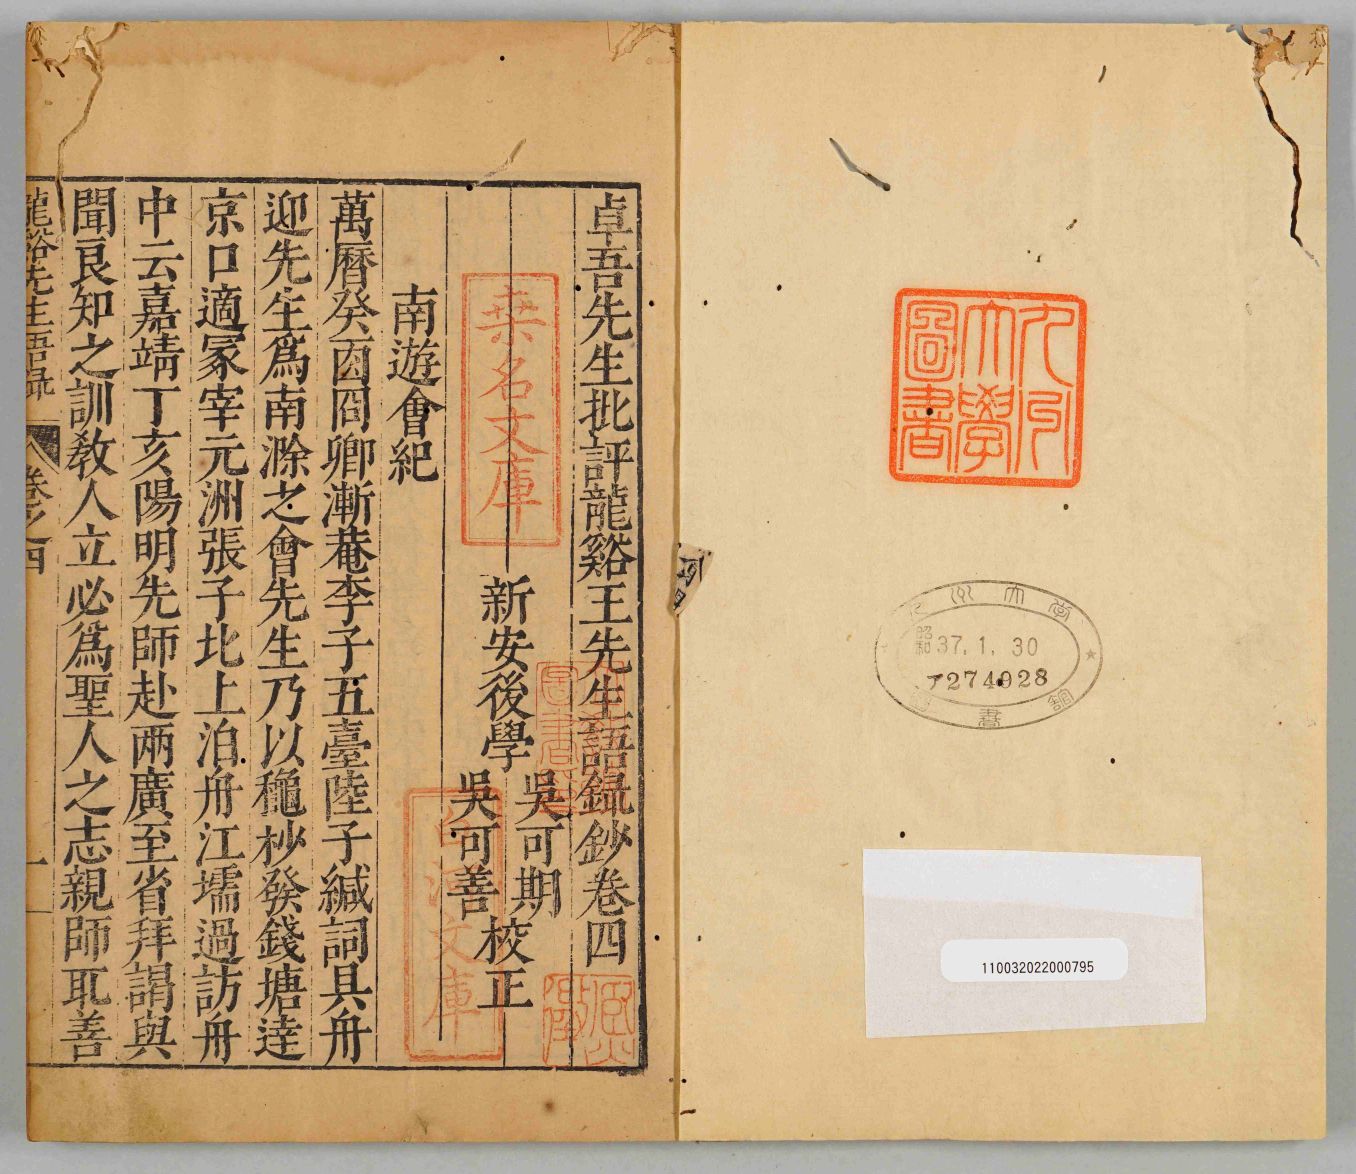 九州
大學
圖書
九州大学
昭和 37. 1. 30
ア274028
圖書館
110032022000795
卓吾先生批評龍谿王先生語録鈔卷四
桑名文庫
新安後學
吳可期
吳可善
校正
白河文庫
南遊會紀
萬曆癸酉冏卿漸菴李子五臺陸子緘詞具舟
迎先生爲南滁之會先生乃以穐杪發錢塘逹
京口適冢宰元洲張子北上泊舟江壖過訪舟
中云嘉靖丁亥陽明先師赴兩廣至省拜謁與
聞良知之訓教人立必爲聖人之志親師取善
龍谿先生語録
卷之四
一